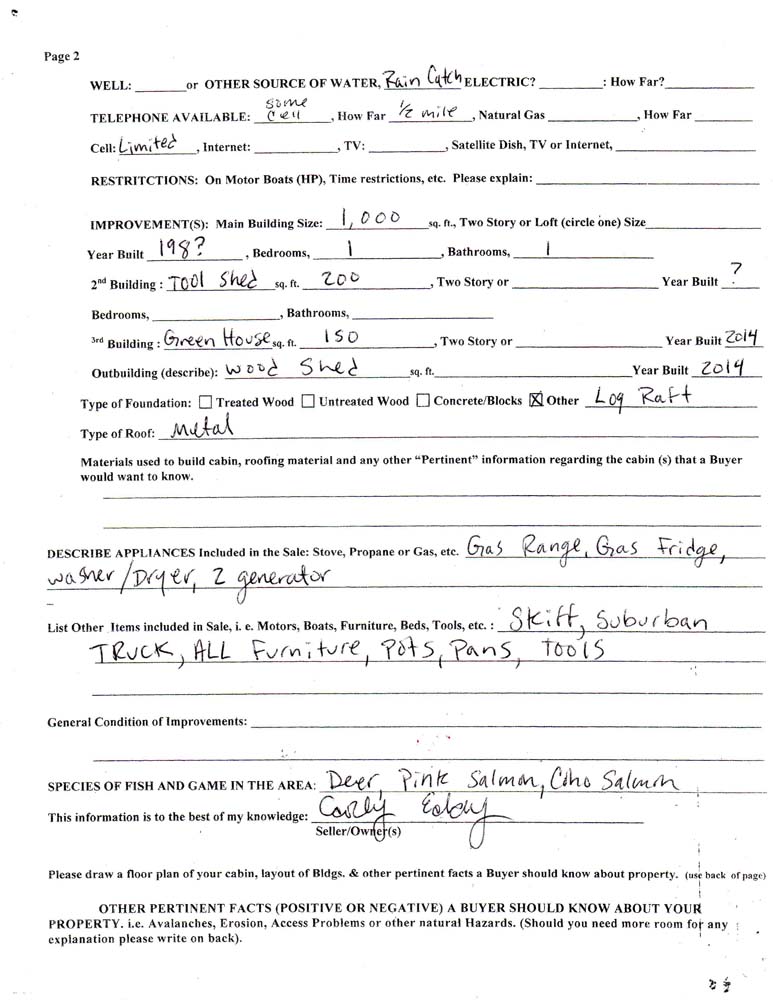 Page 2
WELL: ________or OTHER SOURCE OF WATER, Rain Catch ELECTRIC? __________: How Far?______________
TELEPHONE AVAILABLE: some cell, How Far 1/2 mile, Natural Gas ______________, How Far _________
Cell: Limited, Internet: _____________, TV: ____________, Satellite Dish, TV or Internet, ______________________
RESTRITCTIONS: On Motor Boats (HP), Time restrictions, etc. Please explain: ___________________________________
IMPROVEMENT(S): Main Building Size: 1,000 sq. ft., Two Story or Loft (circle one) Size__________________
Year Built 198?, Bedrooms, 1, Bathrooms, 1
2nd Building : TOOl Shed sq. ft. 200, Two Story or _______________________ Year Built ?
Bedrooms, ____________________, Bathrooms, ______________________
3rd Building : Green House sq. ft. 150, Two Story or _______________________ Year Built 2014
Outbuilding (describe): wood Shed sq. ft.__________________________________ Year Built 2014
Type of Foundation: ☐ Treated Wood ☐ Untreated Wood ☐ Concrete/Blocks ☒ Other Log Raft
Type of Roof: Metal
Materials used to build cabin, roofing material and any other “Pertinent” information regarding the cabin (s) that a Buyer
would want to know.
DESCRIBE APPLIANCES Included in the Sale: Stove, Propane or Gas, etc. Gas Range, Gas Fridge,
washer/Dryer, 2 generator
List Other Items included in Sale, i. e. Motors, Boats, Furniture, Beds, Tools, etc. : Skiff, Suburban
TRUCK, ALL Furniture, Pots, Pans, Tools
General Condition of Improvements: ______________________________
SPECIES OF FISH AND GAME IN THE AREA: Deer, Pink Salmon, Coho Salmon
This information is to the best of my knowledge:
Seller/Owner(s)
Please draw a floor plan of your cabin, layout of Bldgs. & other pertinent facts a Buyer should know about property. (use back of page)
OTHER PERTINENT FACTS (POSITIVE OR NEGATIVE) A BUYER SHOULD KNOW ABOUT YOUR
PROPERTY. i.e. Avalanches, Erosion, Access Problems or other natural Hazards. (Should you need more room for any
explanation please write on back).